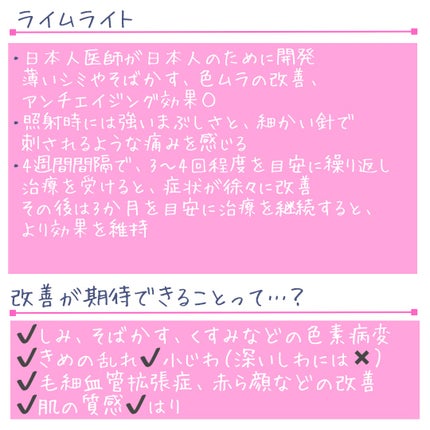 ライムライト
・日本人医師が日本人のために開発
薄いシミやそばかす、色ムラの改善、
アンチエイジング効果〇
・照射時には強いまぶしさと、細かい針で
刺されるような痛みを感じる
・4週間間隔で、3〜4回程度を目安に繰り返し
治療を受けると、症状が徐々に改善
その後は3か月を目安に治療を継続すると、
より効果を維持
改善が期待できることって…？
✔しみ、そばかす、くすみなどの色素病変
✔きめの乱れ✔小じわ(深いしわには✖)
✔毛細血管拡張症、赤ら顔などの改善
✔肌の質感✔はり